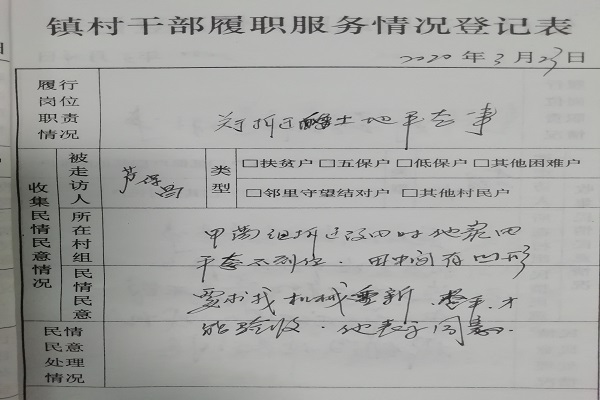 镇村干部履职服务情况登记表
2020年3月23日
履行
岗位
职责
情况
关于拆迁土地平整事
收集民情民意情况
被走访人
类型
□扶贫户 □五保户 □低保户 □其他困难户
□邻里守望结对户 □其他村民户
所在村组
组拆迁改田时他家田
平整不到位.田中间有凹形
民情民意
要求找机械重新 整平.才
能验收.他表示同意.
民情
民意
处理
情况